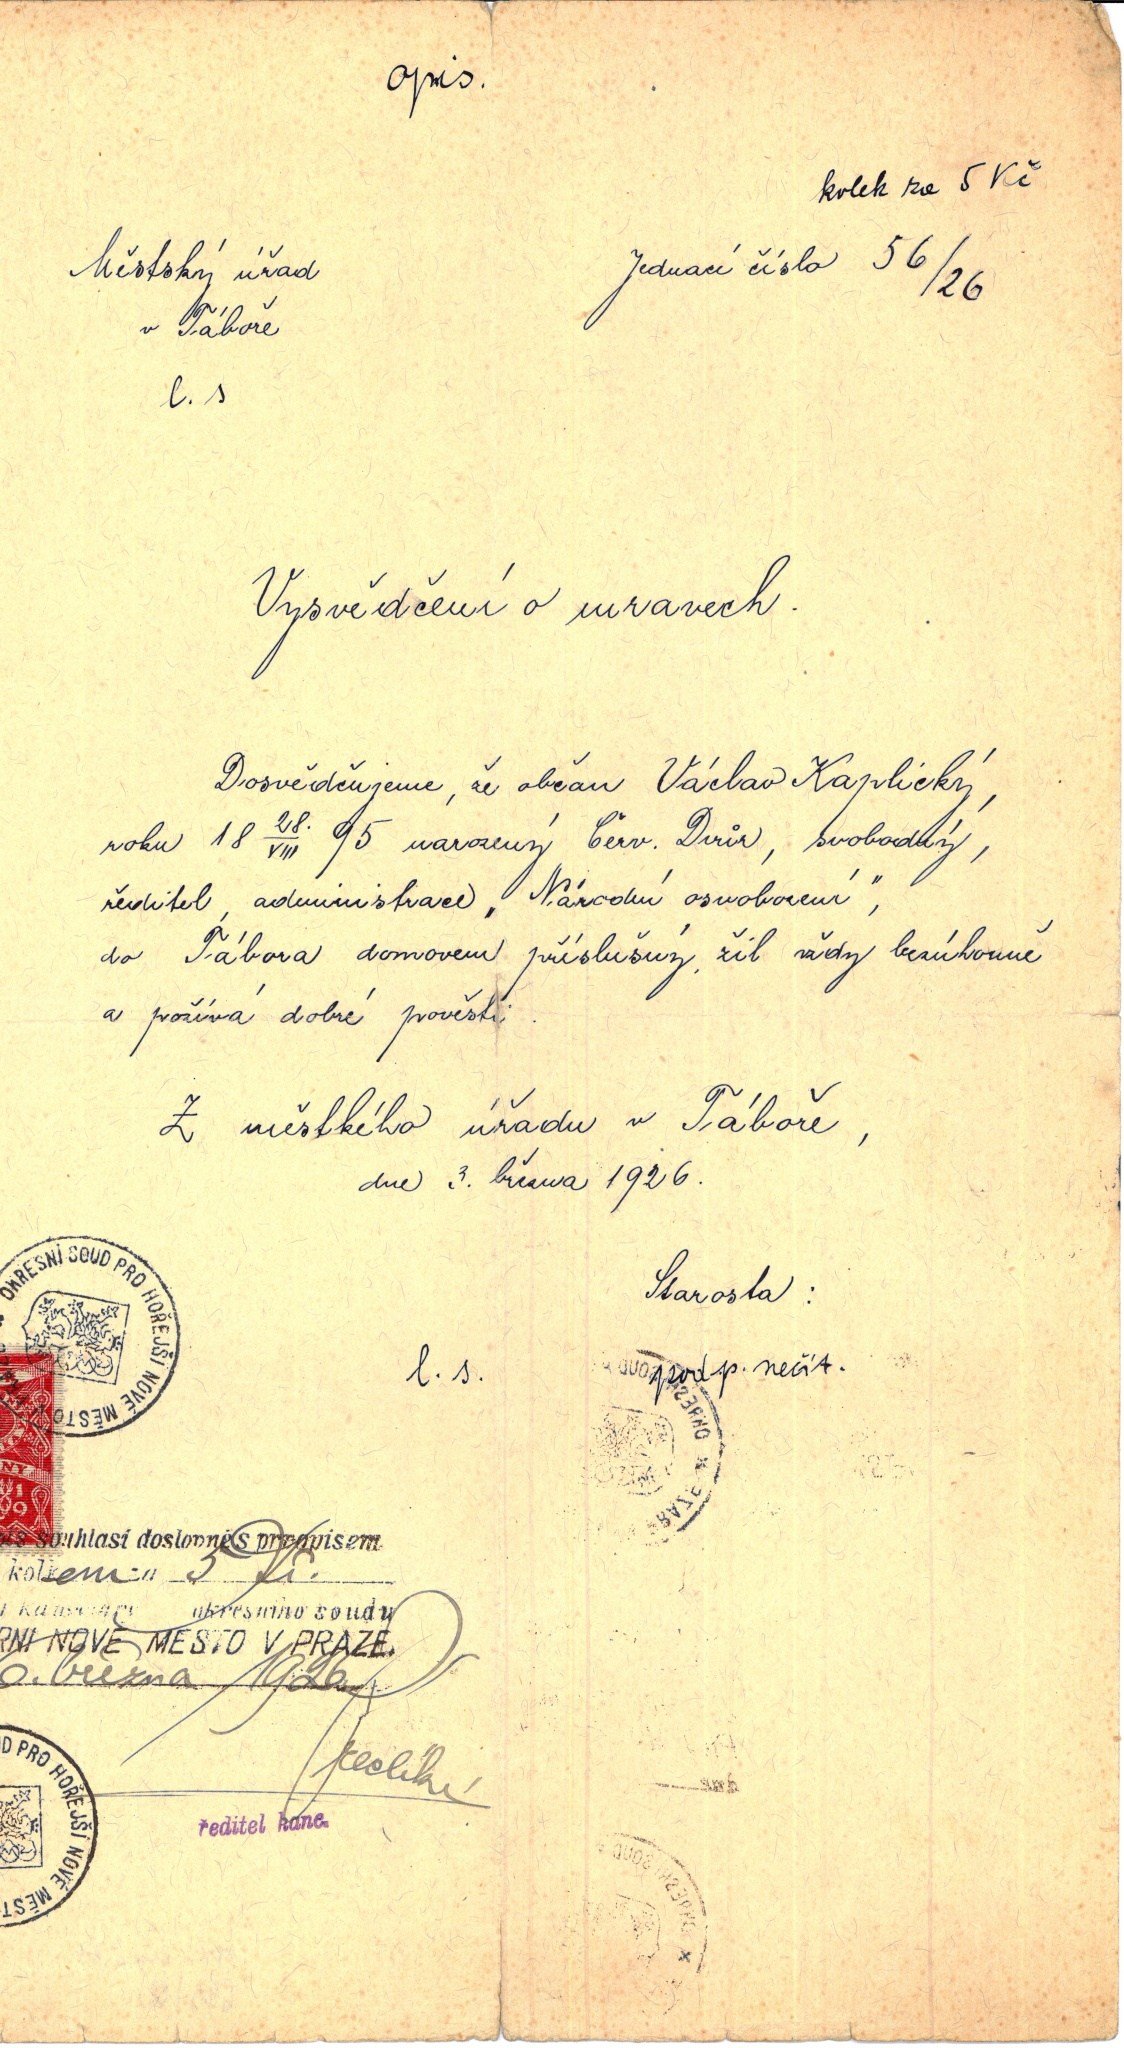 opis.
kolek za 5 Kč
Městský úřad
v Táboře
Jednací číslo 56/26
l. s
Vysvědčení o mravech.
Dosvědčujeme, že občan Václav Kaplický,
roku 18 28./VIII 95 narozený Červ. Dvůr, svobodný,
ředitel administrace „Národní osvobození",
do Tábora domovem příslušný, žil vždy bezúhonně
a požívá dobré pověsti.
Z městkého úřadu v Táboře,
dne 3. března 1926.
Starosta :
l. s.
podp. nečit.
OKRESNÍ SOUD PRO HOŘEJŠÍ NOVÉ MĚSTO
souhlasí doslovně s prvopisem
kolkem 5 Kč.
okresního soudu
NOVÉ MĚSTO V PRAZE.
března 1926
ředitel kanc.
PRO HOŘEJŠÍ NOVÉ MĚST